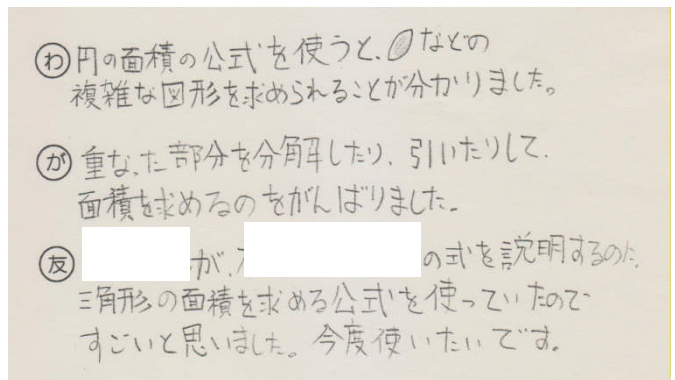 わ 円の面積の公式を使うと、などの
複雑な図形を求められることが分かりました。
が 重なった部分を分解したり、引いたりして、
面積を求めるのをがんばりました。
友 が、の式を説明するのに、
三角形の面積を求める公式を使っていたので
すごいと思いました。今度使いたいです。